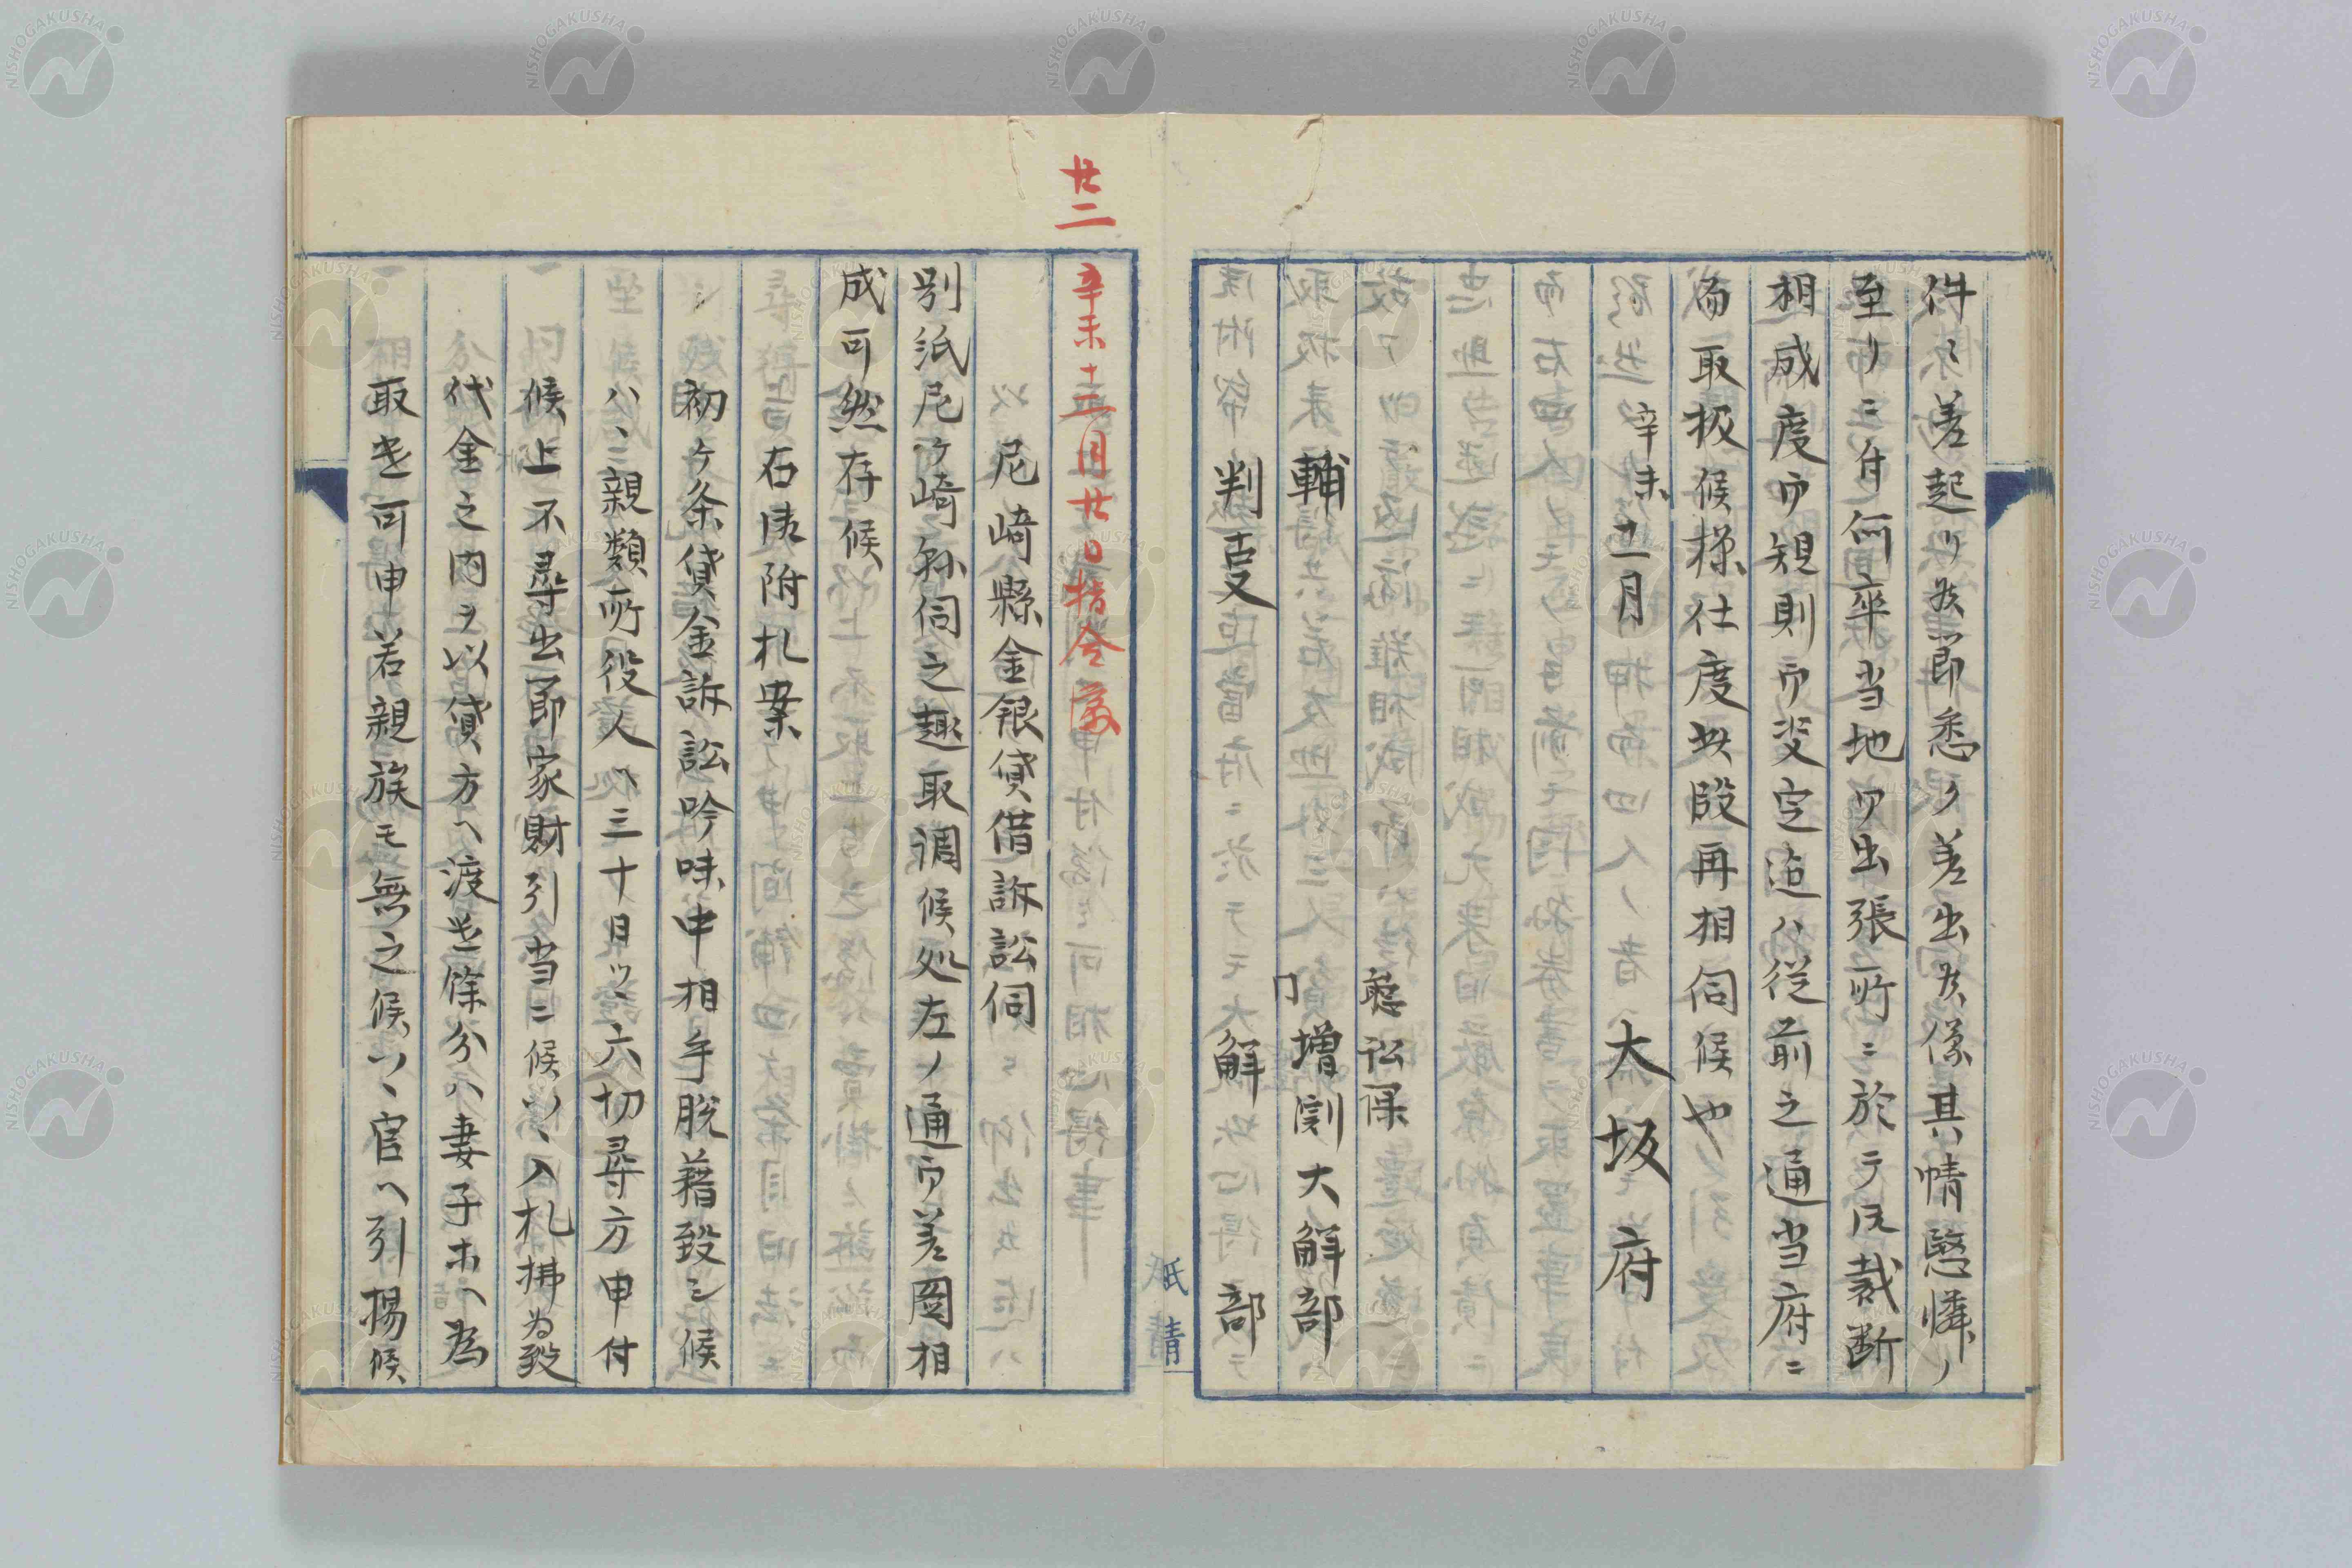 件々差起り候節悉ク差出候儀其情愍憐ノ
至リニ付何卒当地ヘ出張所ニ於テ御裁断
相成度且規則御改定迄ハ従前之通当府ニ
而取扱候様仕度此段再相伺候也
辛未十一月
大坂府
聴訟課
輔 増渕大解部
判夏 大解部
廿二
辛未十二月廿日指令済
尼崎縣金銀貸借訴訟伺
別紙尼ケ崎縣伺之趣取調候処左ノ通御差圖相
成可然存候
右御附札案
初ケ条貸金訴訟吟味中相手脱藉致シ候
ハヽ親類所役人ヘ三十日ツヽ六切尋方申付
候上不尋出節家財引当ニ候ハヽ入札拂為致
代金之内ヲ以貸方ヘ渡遣餘分ハ妻子ホヘ為
取遣可申若親族モ無之候ハヽ官ヘ引揚候
NISHOGAKUSHA